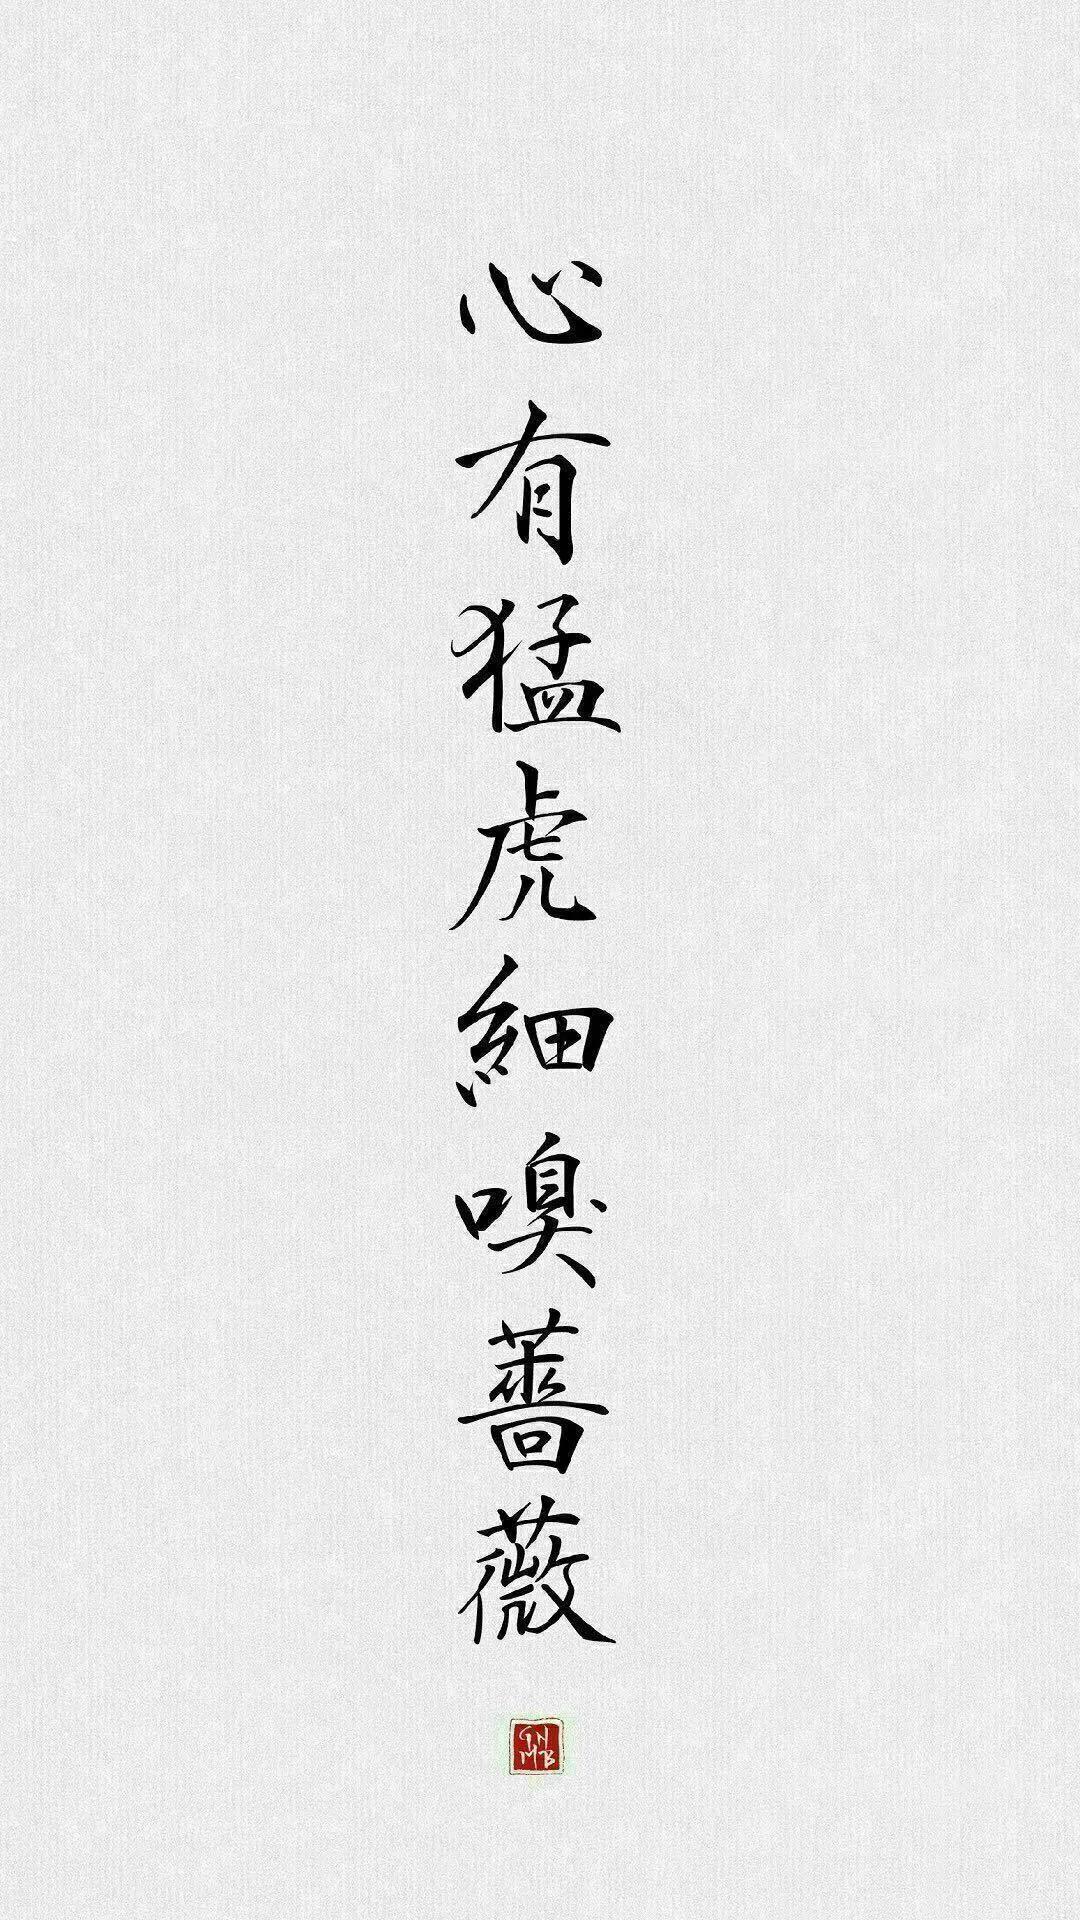 心有猛虎細嗅薔薇
GN
MB